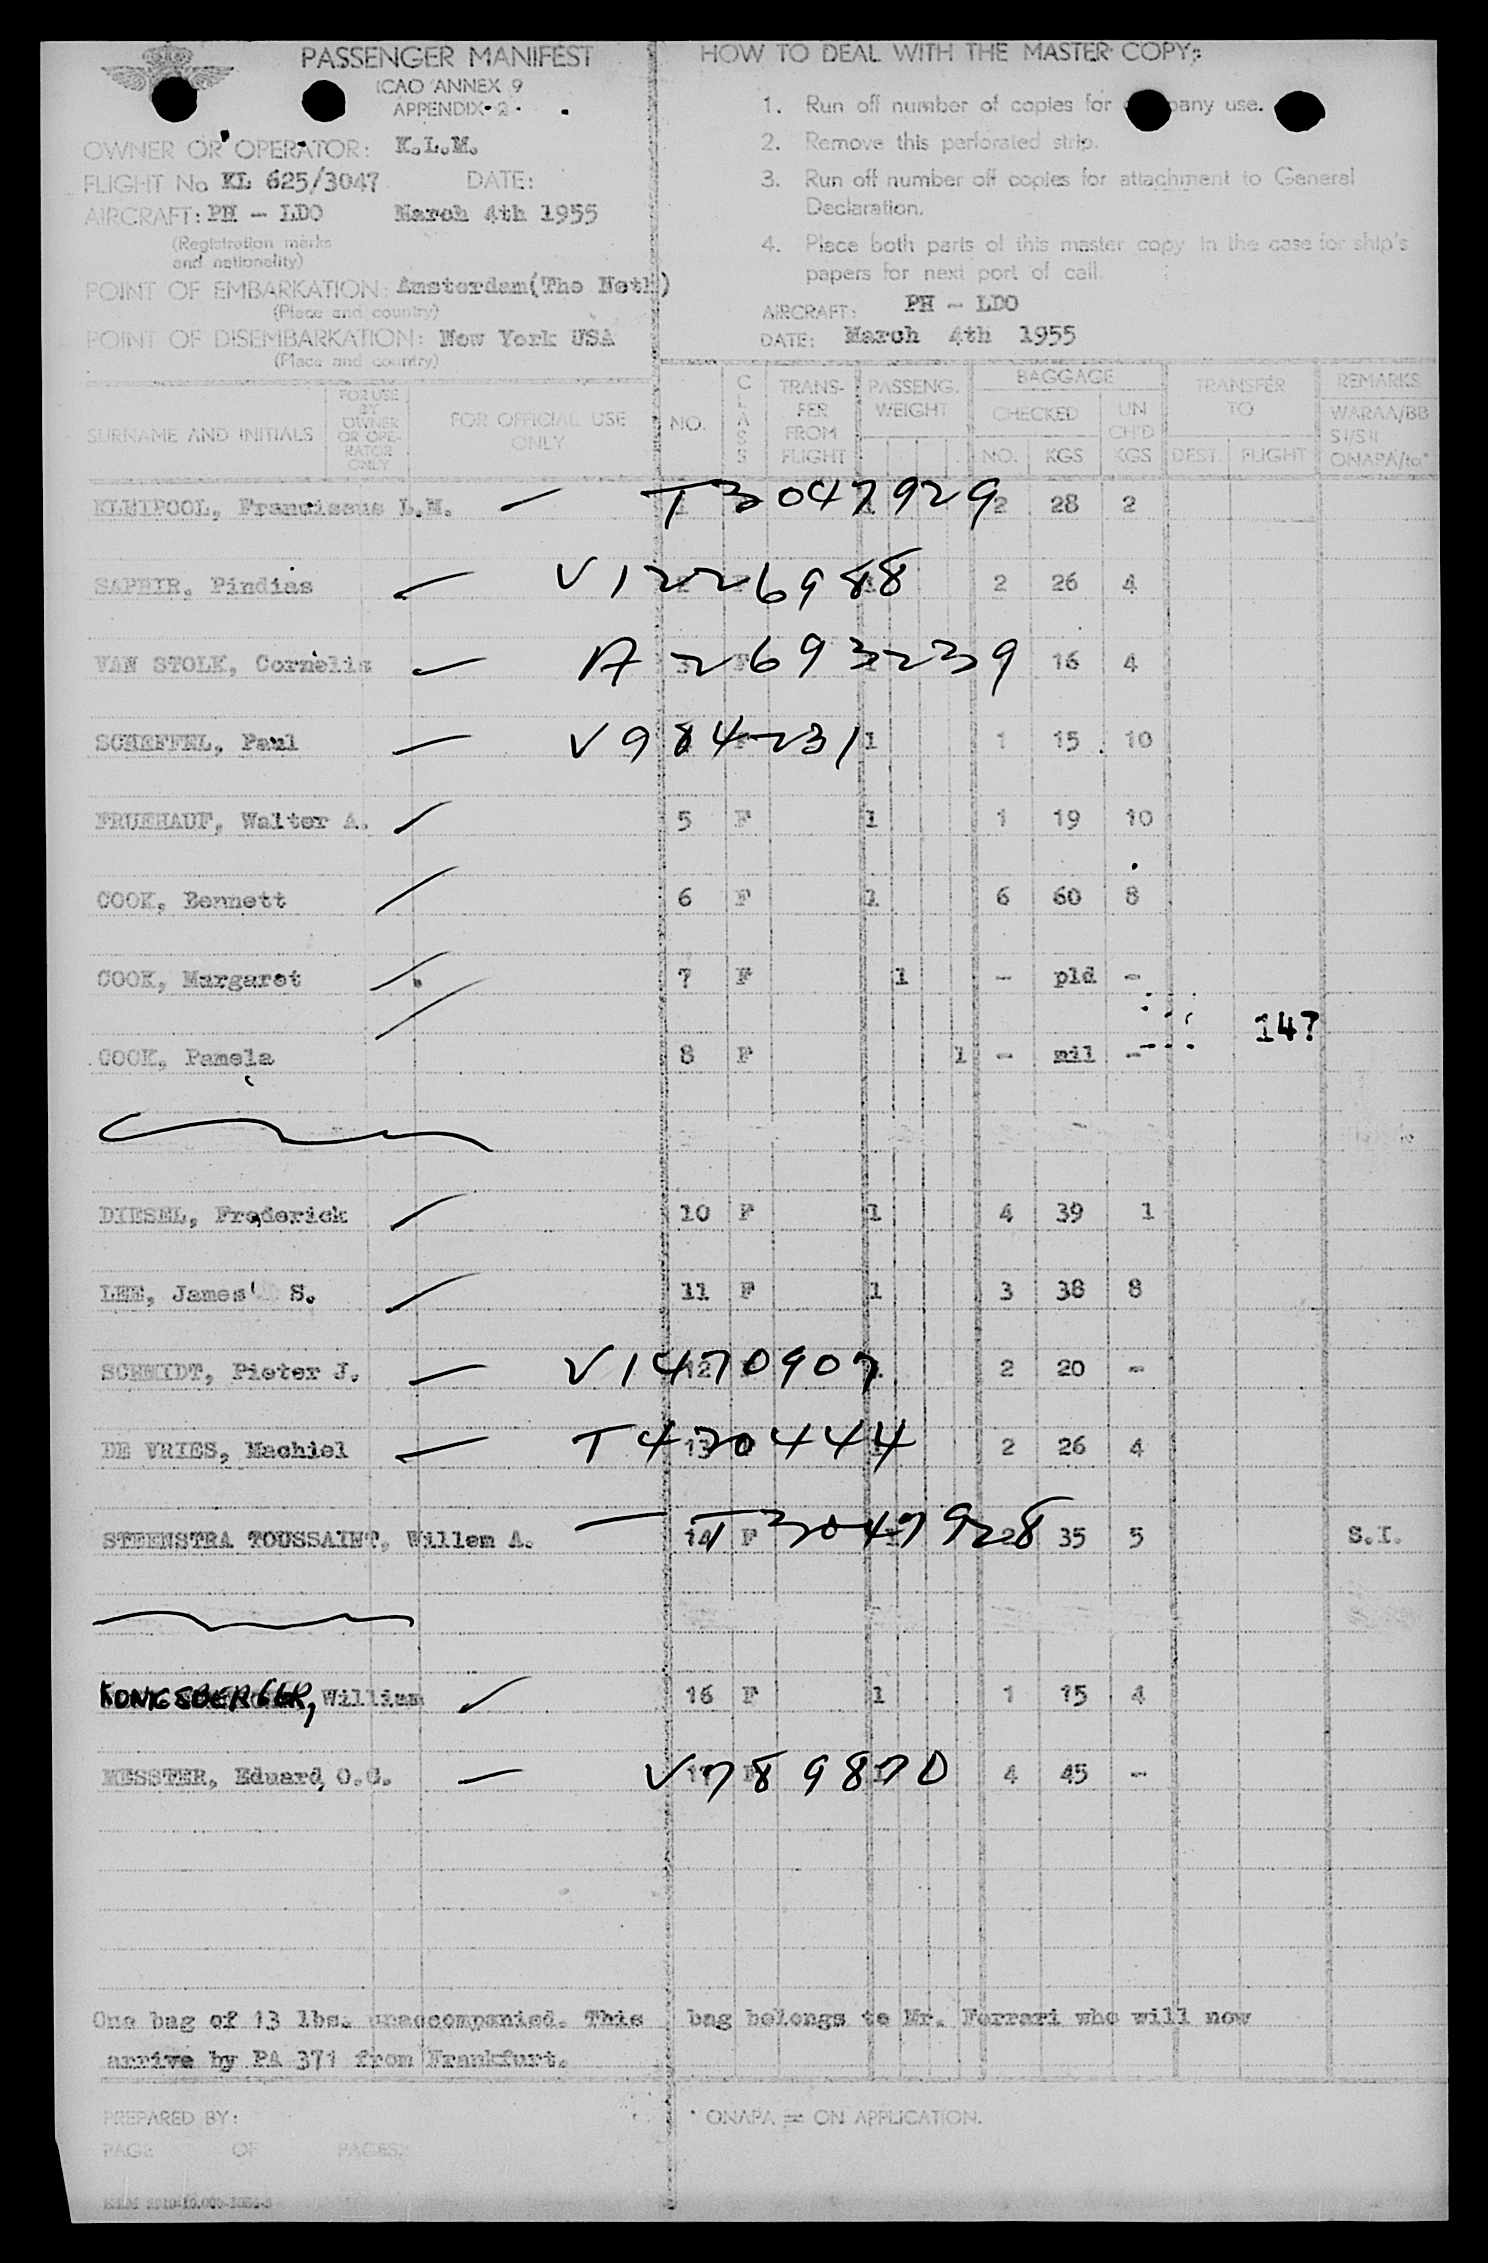 PASSENGER MANIFEST
ICAO ANNEX 9
APPENDIX 2
OWNER OR OPERATOR: K.L.M.
FLIGHT No KL 625/3047 DATE:
AIRCRAFT: PH - LDO March 4th 1955
(Registration marks
and nationality)
POINT OF EMBARKATION: Amsterdam(The Neth)
(Place and country)
POINT OF DISEMBARKATION: New York USA
(Place and country)
HOW TO DEAL WITH THE MASTER COPY:
1. Run off number of copies for company use.
2. Remove this perforated strip.
3. Run off number off copies for attachment to General
Declaration.
4. Place both parts of this master copy in the case for ship's
papers for next port of call.
AIRCRAFT: PH - LDO
DATE: March 4th 1955
SURNAME AND INITIALS FOR USE BY OWNER OR OPE-RATOR ONLY FOR OFFICIAL USE ONLY NO. CLASS TRANS-FER FROM FLIGHT PASSENG. WEIGHT BAGGAGE CHECKED NO. KGS UN CH'D KGS TRANSFER TO DEST. FLIGHT REMARKS WARAA/BB ST/SH ONAPA/to*
Franciscus L.M. — T3047929 2 28 2
SAPHIR, Pindias — V1226988 2 26 4
VAN STOLK, Cornelis — A2693239 16 4
SCHEFFEL, Paul — V984231 1 1 15 10
FRUEHAUF, Walter A. 5 F 1 1 19 10
COOK, Bennett 6 F 1 6 60 8
COOK, Margaret 7 F 1 - pld -
147
COOK, Pamela 8 F 1 - nil -
DIESEL, Frederick 10 F 1 4 39 1
LEE, James S. 11 F 1 3 38 8
SCHMIDT, Pieter J. — V1470907 12 2 20 -
DE VRIES, Machiel — T4720444 13 2 26 4
STEENSTRA TOUSSAINT, Willem A. — T3047928 14 F 2 35 5 S.I.
KONIGSBERGER, William 16 F 1 1 15 4
MESSTER, Eduard O.G. — V789870 17 4 45 -
One bag of 13 lbs. unaccompanied. This bag belongs to Mr. Ferrari who will now
arrive by PA 371 from Frankfurt.
PREPARED BY:
PAGE OF PAGES.
* ONAPA = ON APPLICATION.